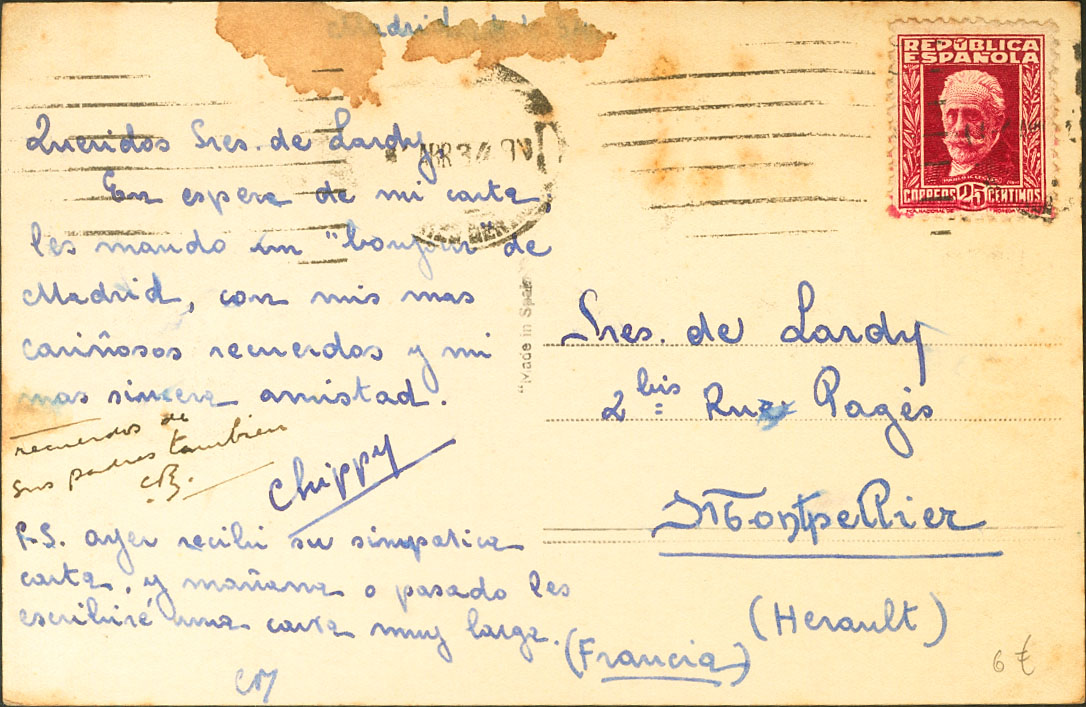 Madrid
Queridos Sres. de Lardy
En espera de mi carta
les mando un "bonjour de
Madrid, con mis mas
cariñosos recuerdos y mi
mas sincera amistad.
recuerdos de
sus padres también
Chippy
P.S. ayer recibi su simpatica
carta, y mañana o pasado les
escribiré una carta muy larga.
"Made in Spain
REPÚBLICA
ESPAÑOLA
CORREOS 25 CENTIMOS
Sres. de Lardy
2 bis Rue Pagés
Montpellier
(Herault)
(Francia)
6 €